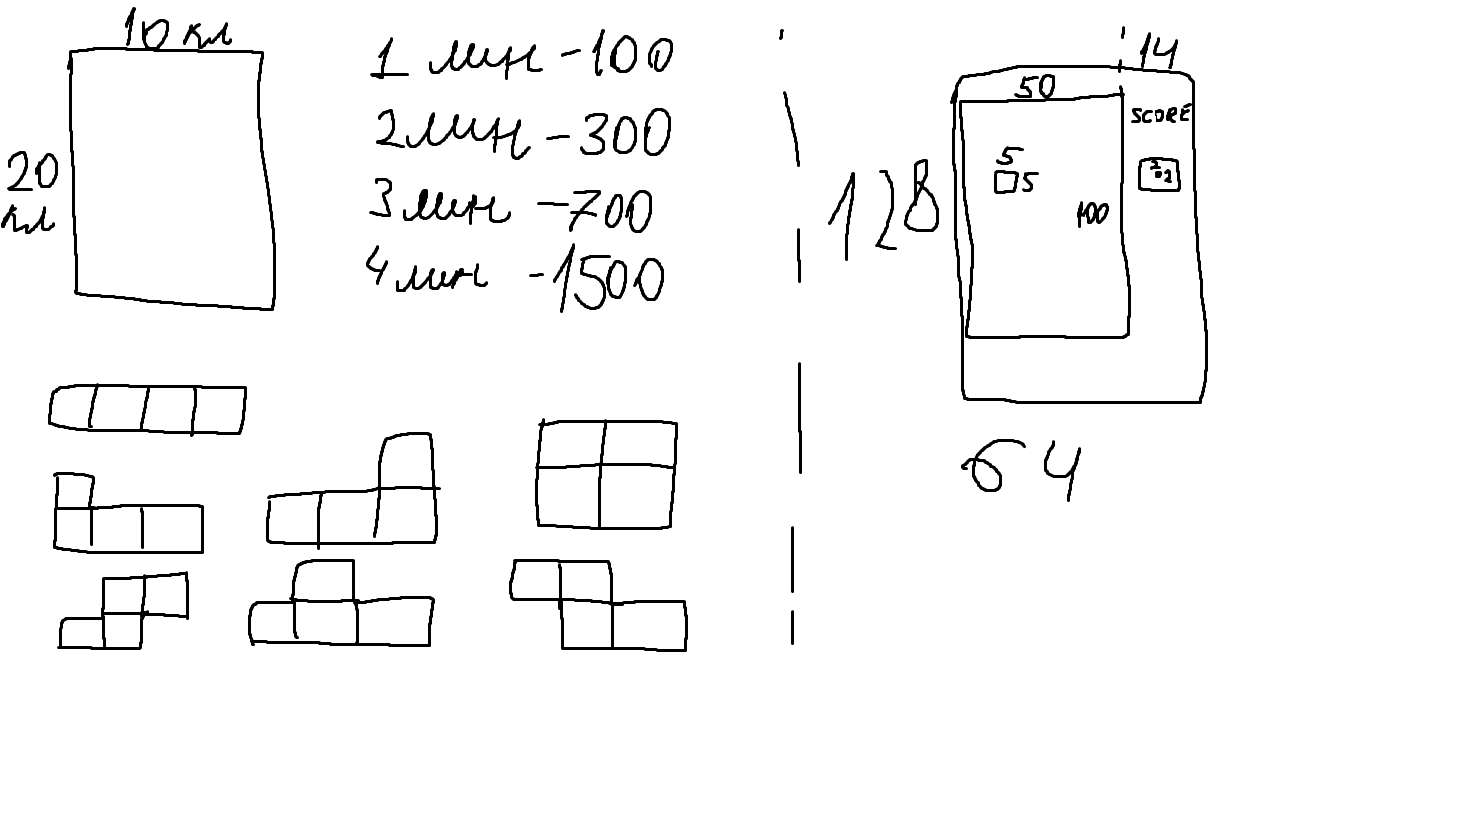 10 кл
20
кл
1 мин - 100
2 мин - 300
3 мин - 700
4 мин - 1500
14
50
SCORE
5
5
100
128
64